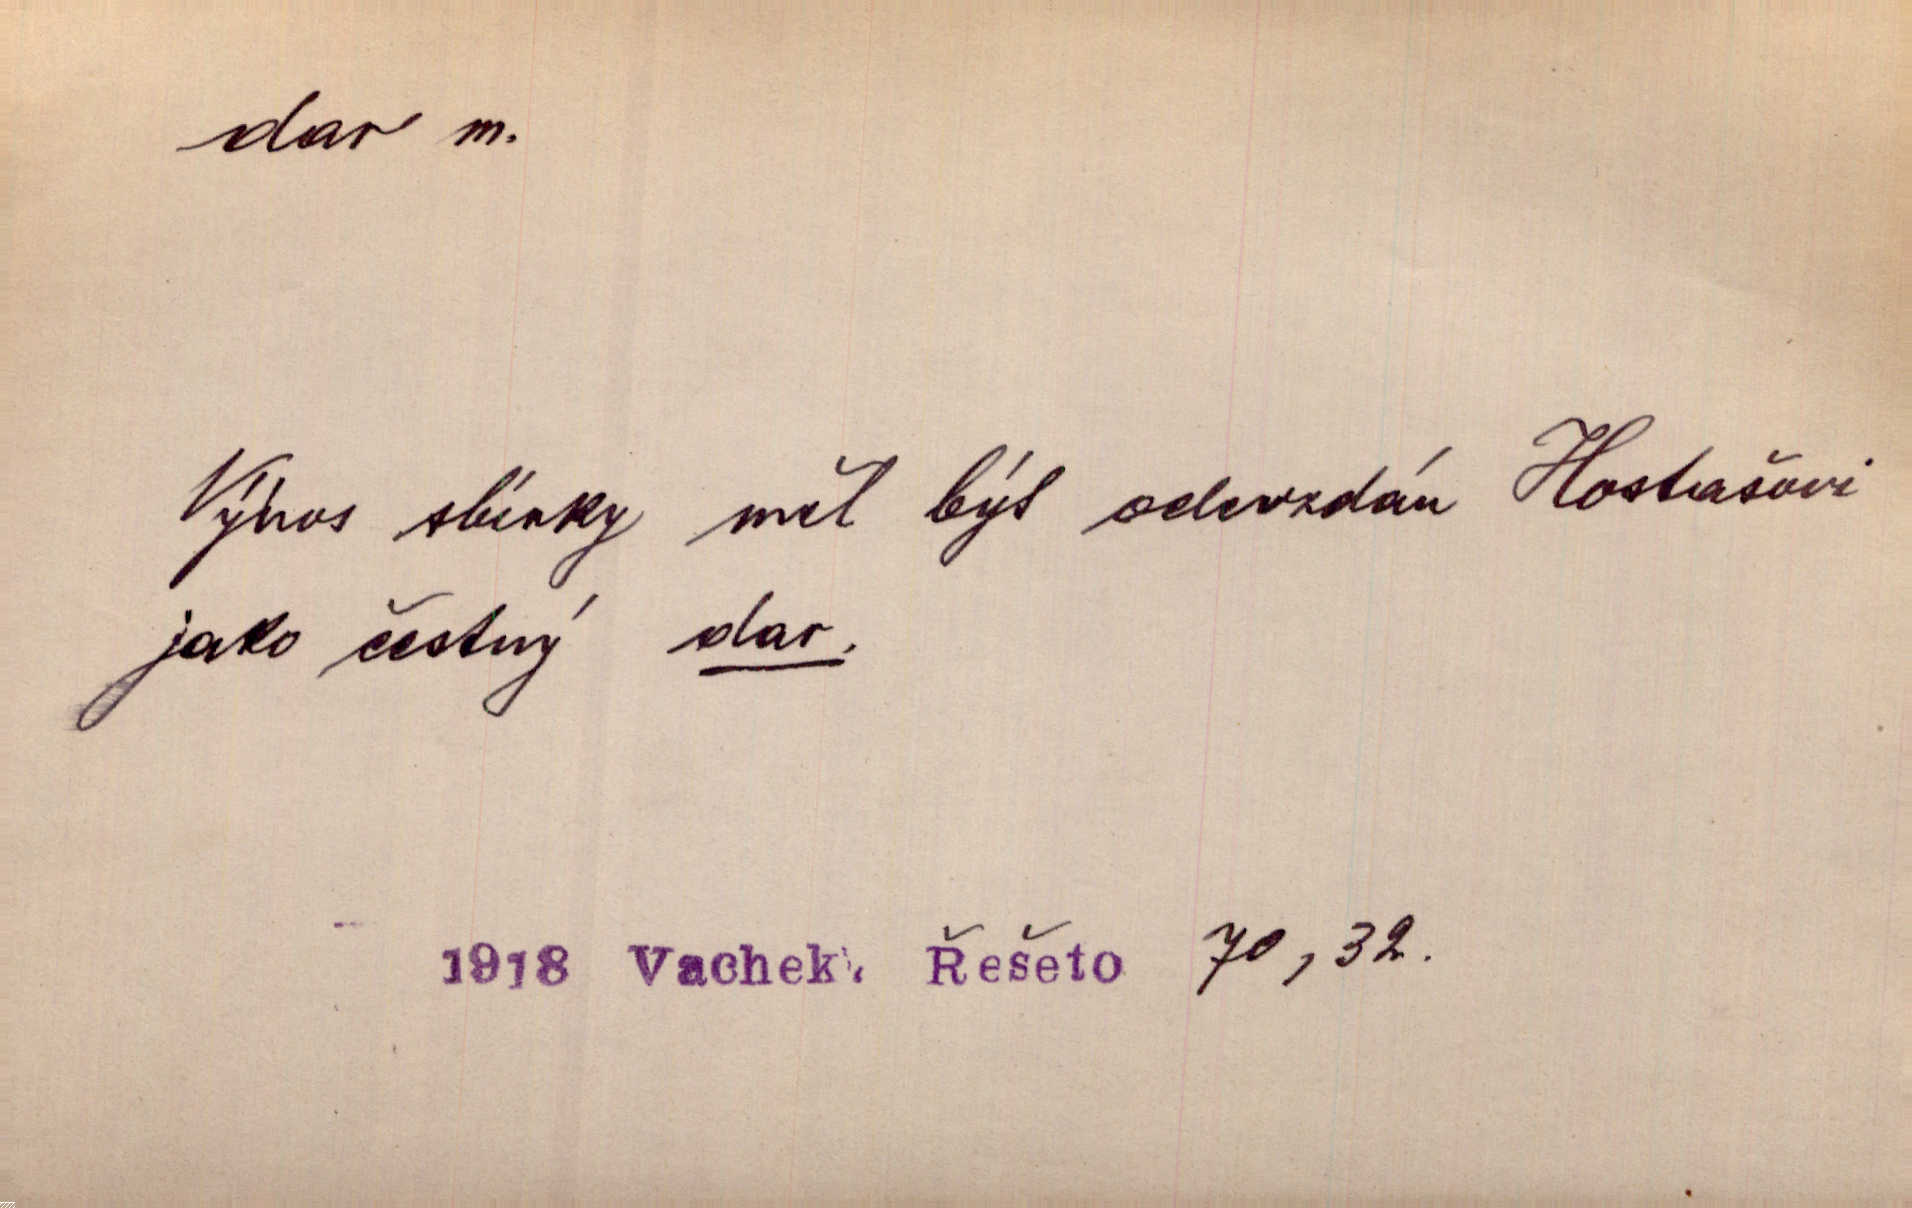 dar m.
Výnos sbírky měl být odevzdán Hostašovi
jako čestný dar.
1918 Vachek. Řešeto 70, 32.